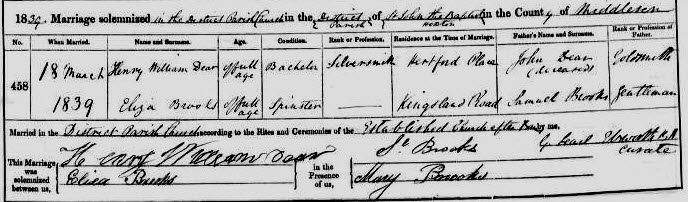 1839. Marriage solemnized in the District Parish Church in the District Parish of St John the Baptist Hoxton in the County of Middlesex
No. When Married. Name and Surname. Age. Condition. Rank or Profession. Residence at the Time of Marriage. Father's Name and Surname. Rank or Profession of Father.
458 18 March Henry William Dear Of full age Bachelor Silversmith Hertford Place John Dear (deceased) Goldsmith
1839 Eliza Brooks Of full age Spinster Kingsland Road Samuel Brooks Gentleman
Married in the District Parish Church according to the Rites and Ceremonies of the Established Church after Banns by me,
This Marriage was solemnized between us, Henry William Dear in the Presence of us, Brooks Curate
Eliza Brooks Mary Brooks